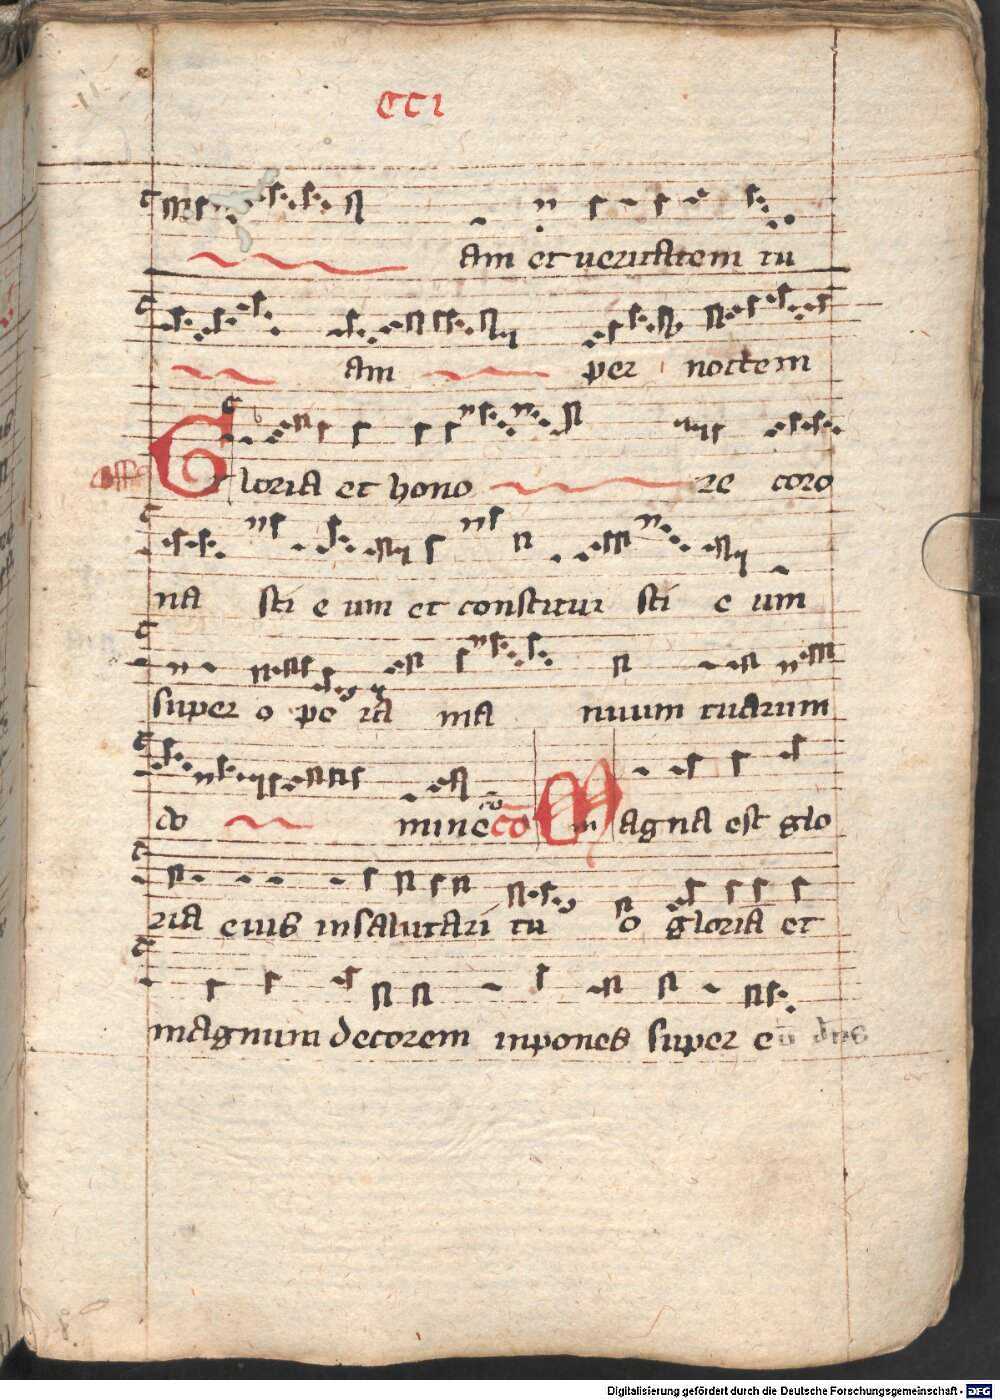 CCI
am et veritatem tu
am per noctem
Off Gloria et hono re coro
na sti e um et constitui sti e um
super o pe ra ma nuum tuarum
do mine co Magna est glo
ria eius in salutari tu o gloria et
magnum decorem inpones super eū dn̄e
Digitalisierung gefördert durch die Deutsche Forschungsgemeinschaft - DFG